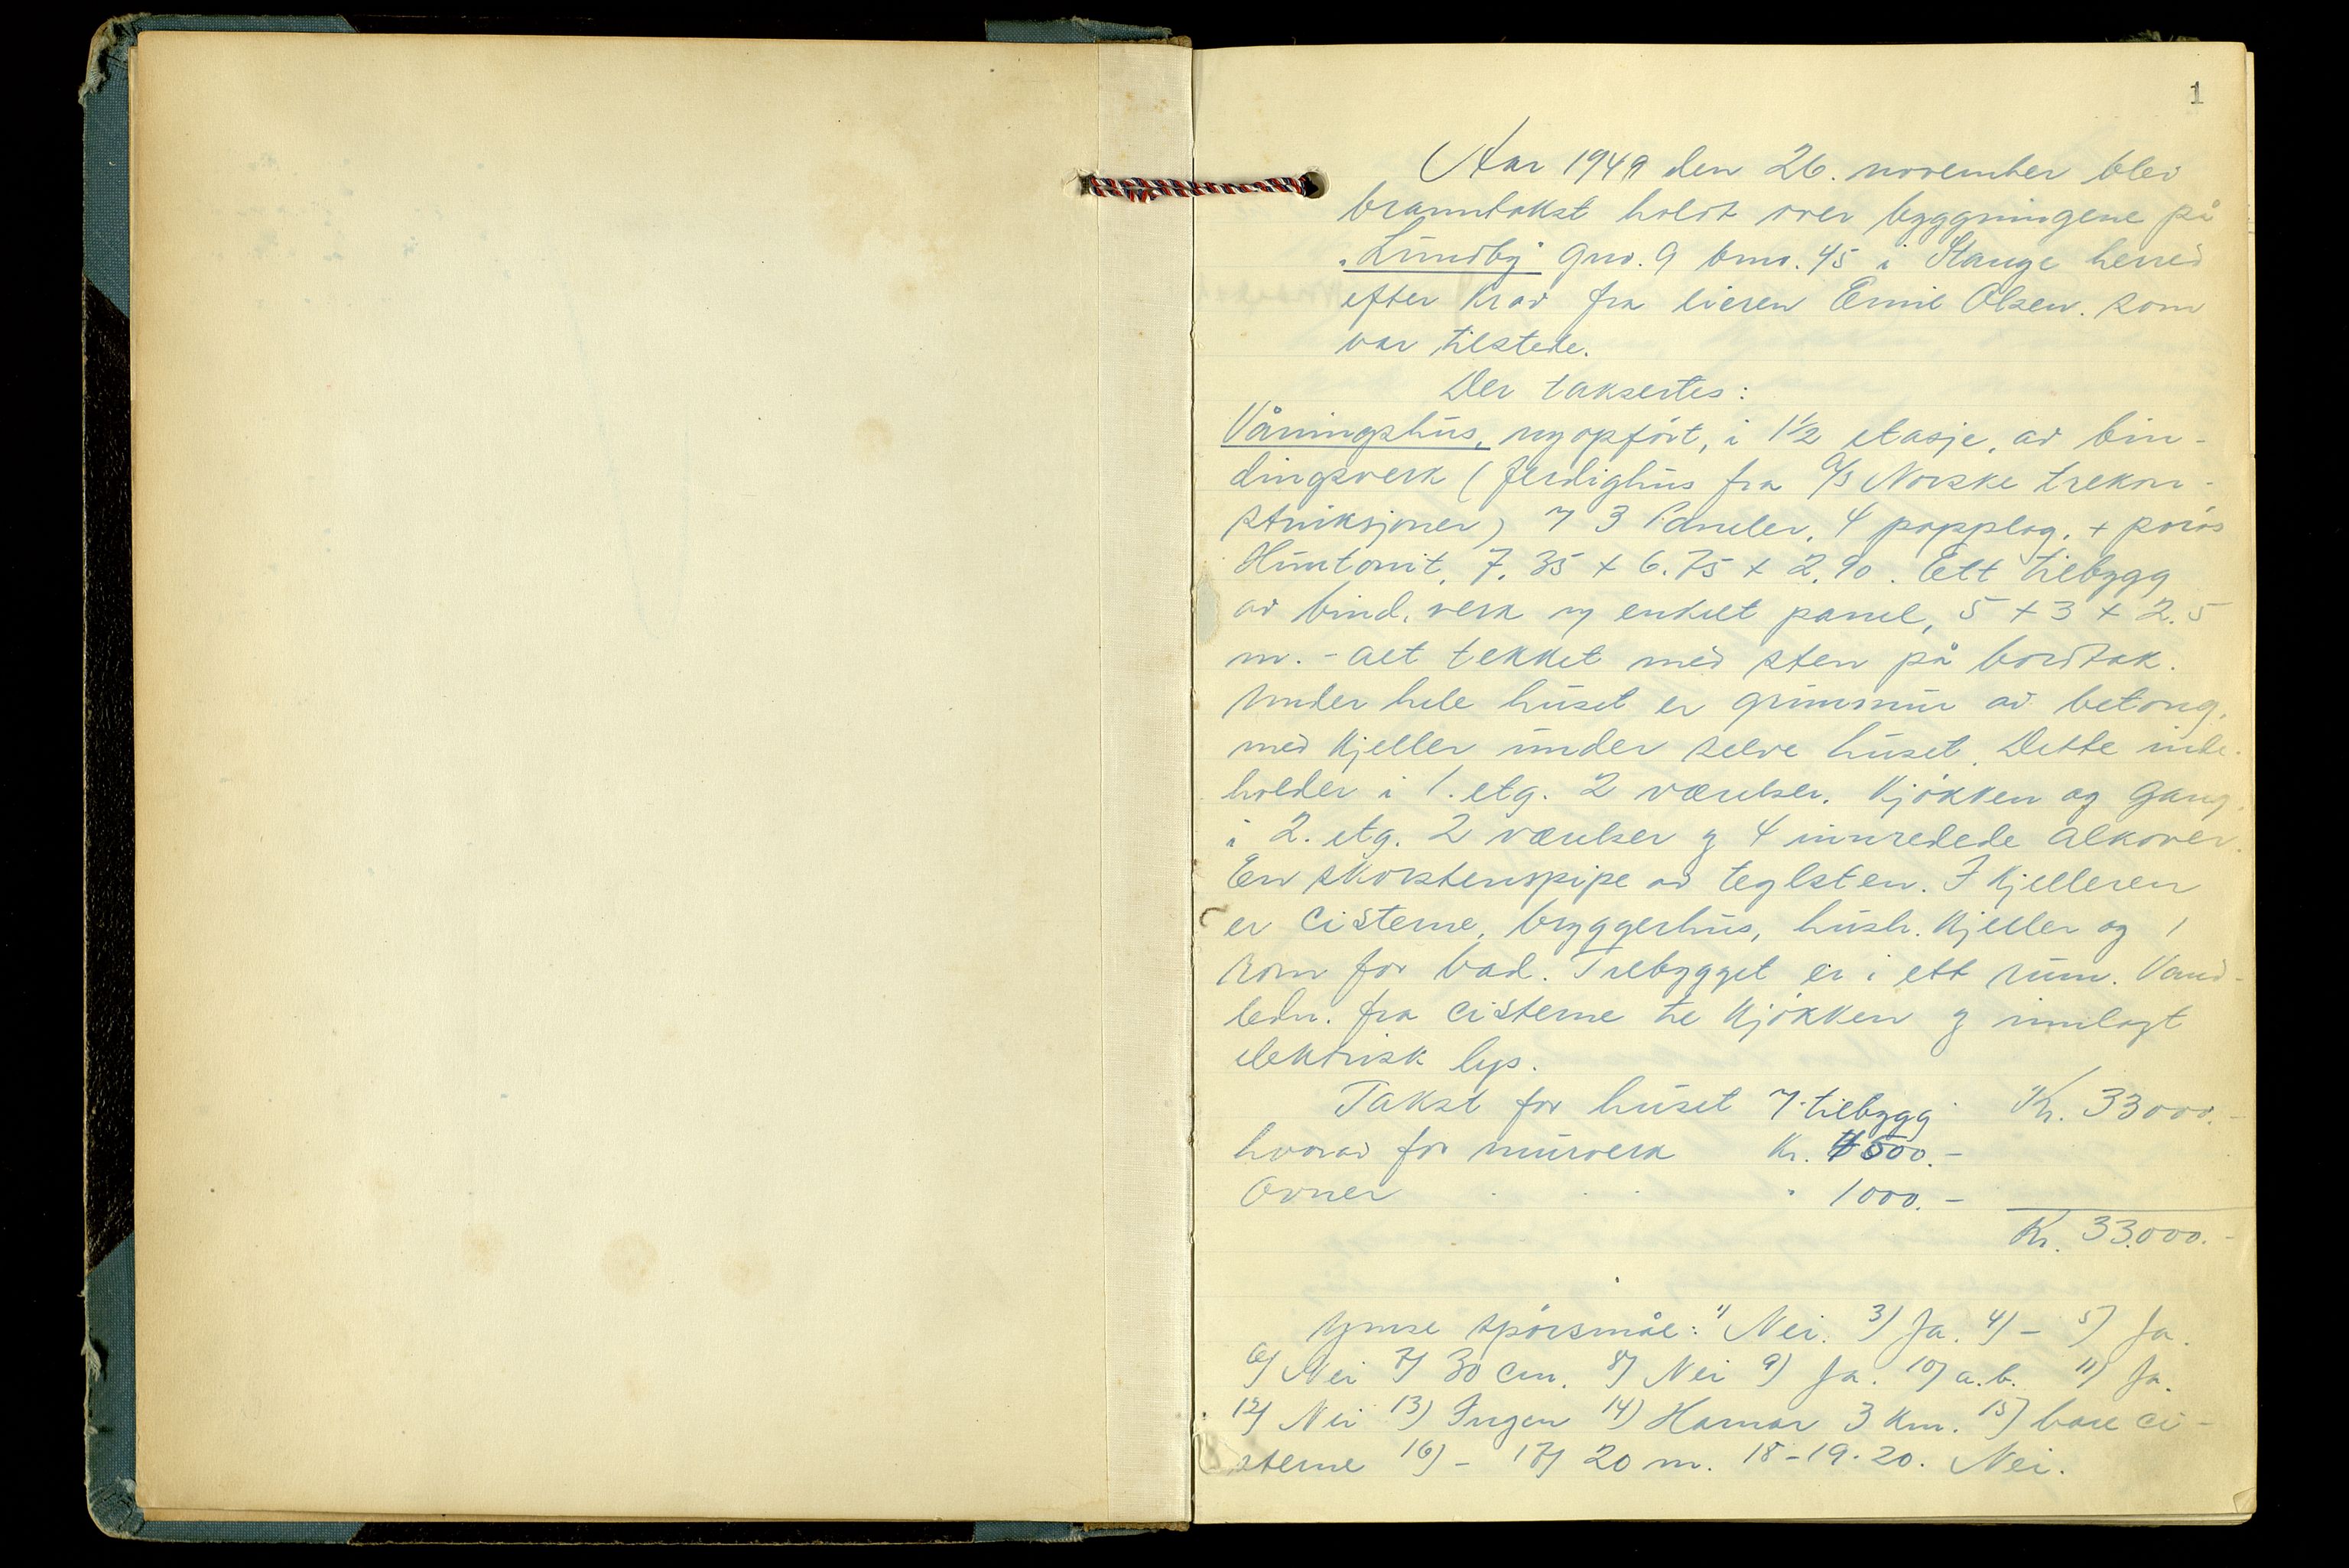 1
Aar 1949 den 26. november blev
branntakst holdt over byggningene på
"Lundby" gnr. 9 bnr. 45 i Stange herred
efter krav fra eieren Emil Olsen. som
var tilstede.
Der taksertes:
Våningshus, nyopført, i 1½ etasje, av bin-
dingsverk (ferdighus fra A/S Norske trekon-
struksjoner) m 3 Paneler, 4 papplag, + porøs
Huntonit, 7.35 + 6.75 + 2.90. Ett tilbygg
av bind. verk m enkelt panel, 5 + 3 + 2.5
m. - alt tekket med sten på bordtak.
Under hele huset er grunnmur av betong,
med kjeller under selve huset. Dette inde-
holder i 1. etg. 2 værelser, kjøkken og gang,
i 2. etg. 2 værelser og 4 innredede alkover.
En skorstenspipe av teglsten. I kjelleren
er cisterne, bryggerhus, hush. kjeller og 1
rom for bad. Tilbygget er i ett rum. Vand-
ledn. fra cisterne til kjøkken og innlagt
elektrisk lys.
Takst for huset m. tilbygg Kr. 33000.-
hvorav for murverk Kr. 4500.-
Ovner " 1000.-
Kr. 33.000.-
Ymse spørsmål: 1) Nei. 3) Ja. 4) - 5) Ja.
6) Nei 7) 30 cm. 8) Nei 9) Ja. 10) a.b. 11) Ja.
12) Nei 13) Ingen 14) Hamar 3 km. 15) bare ci-
sterne 16) - 17) 20 m. 18-19-20. Nei.